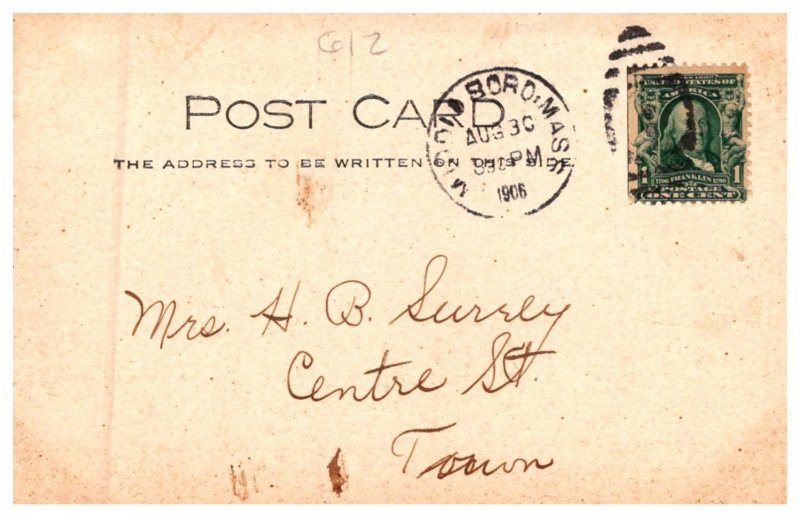 612
POST CARD
THE ADDRESS TO BE WRITTEN ON THIS SIDE
MIDDLEBORO, MASS.
AUG 30
PM
1906
UNITED STATES OF
AMERICA
1706 FRANKLIN 1790
1 POSTAGE 1
ONE CENT
Mrs. H. B. Surrey
Centre St.
Town